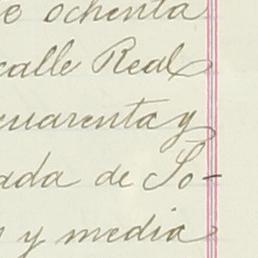 e ochenta
calle Real
cuarenta y
ada de So-
s y media